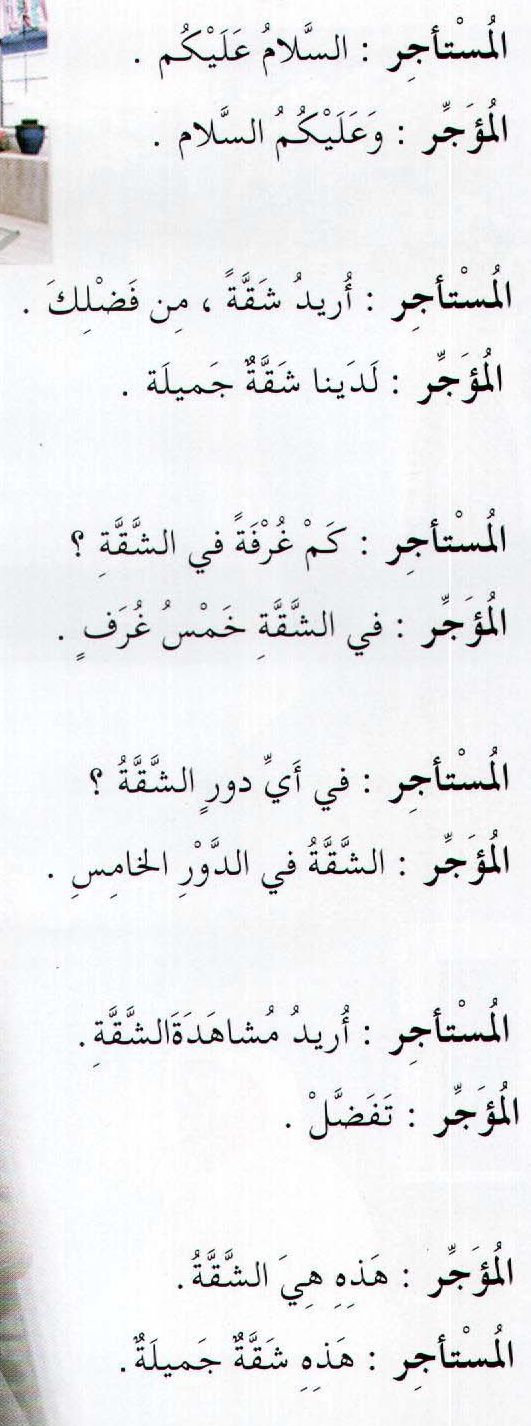 المُسْتأجِر : السَّلامُ عَلَيْكُم .
المُؤَجِّر : وَعَلَيْكُمُ السَّلام .
المُسْتأجِر : أُريدُ شَقَّةً ، مِن فَضْلِكَ .
المُؤَجِّر : لَدَينا شَقَّةٌ جَميلَة .
المُسْتأجِر : كَمْ غُرْفَةً في الشَّقَّةِ ؟
المُؤَجِّر : في الشَّقَّةِ خَمْسُ غُرَفٍ .
المُسْتأجِر : في أَيِّ دورٍ الشَّقَّةُ ؟
المُؤَجِّر : الشَّقَّةُ في الدَّوْرِ الخامِسِ .
المُسْتأجِر : أُريدُ مُشاهَدَةَالشَّقَّةِ .
المُؤَجِّر : تَفَضَّلْ .
المُؤَجِّر : هَذِهِ هِيَ الشَّقَّةُ .
المُسْتأجِر : هَذِهِ شَقَّةٌ جَميلَةٌ .